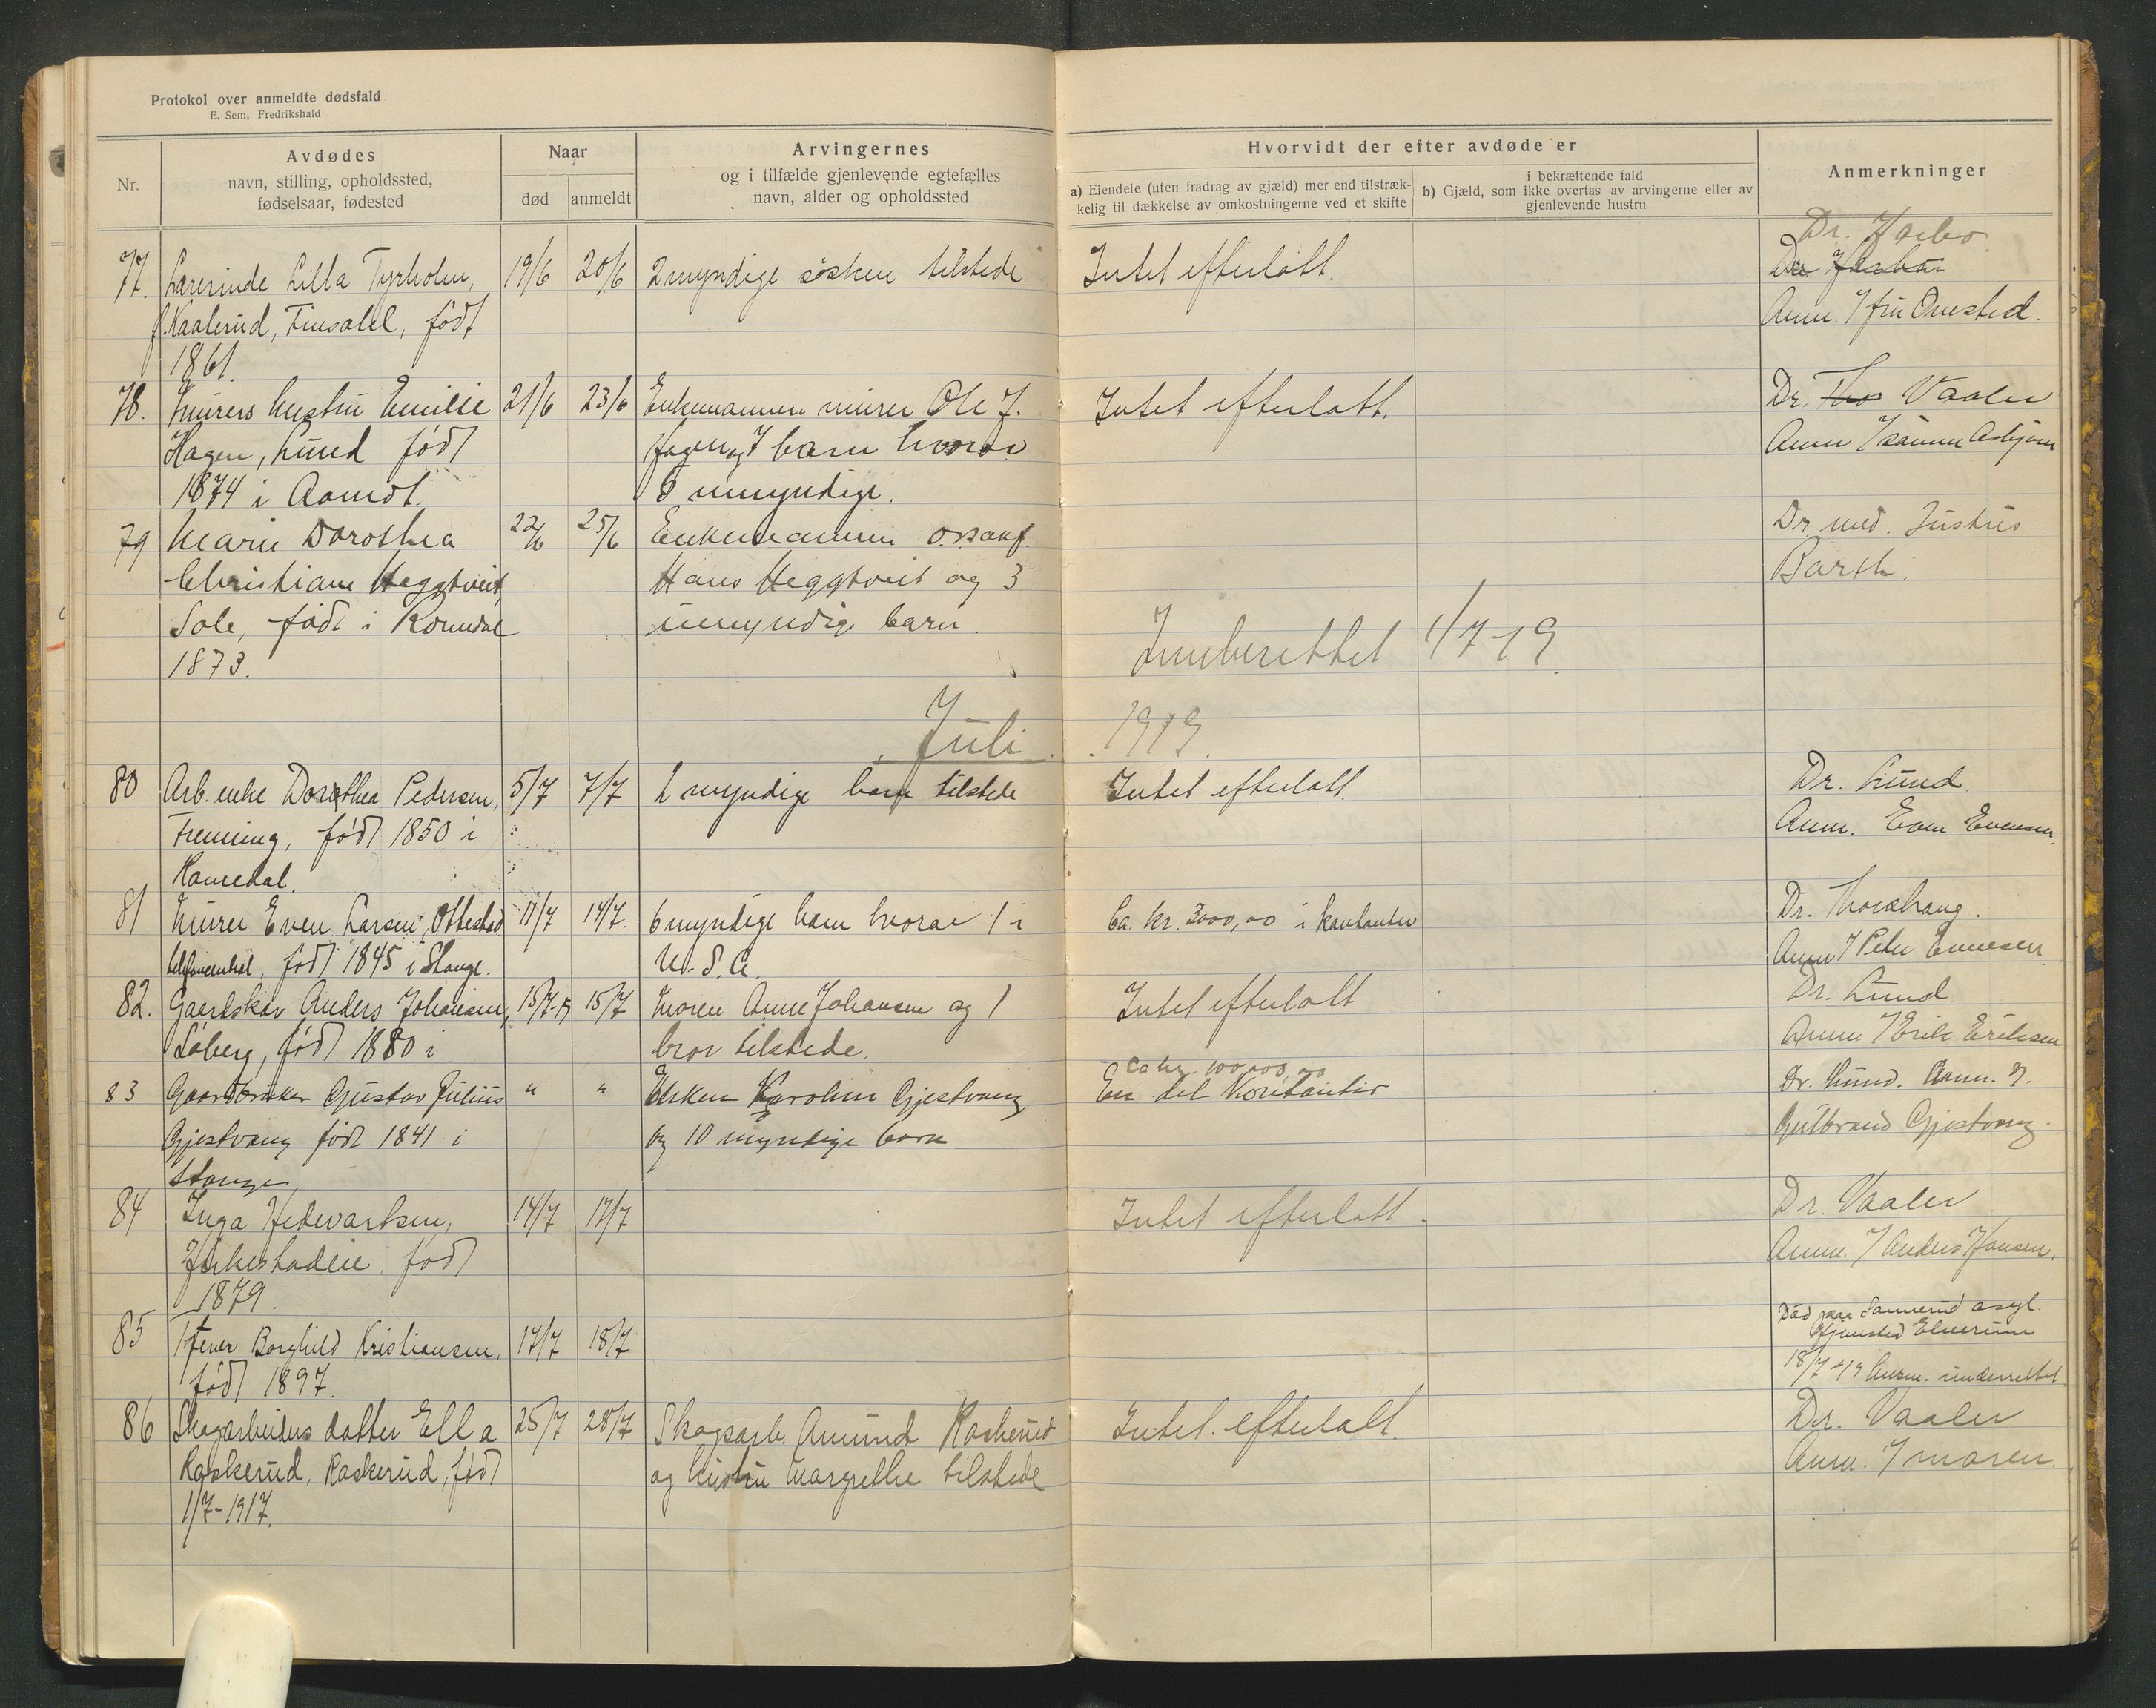 Protokol over anmeldte dødsfald
E. Sem, Fredrikshald
Nr.
Avdødes
navn, stilling, opholdssted,
fødselsaar, fødested
Naar
død
anmeldt
Arvingernes
og i tilfælde gjenlevende egtefælles
navn, alder og opholdssted
Hvorvidt der efter avdøde er
a) Eiendele (uten fradrag av gjæld) mer end tilstræk-
kelig til dækkelse av omkostningerne ved et skifte
i bekræftende fald
b) Gjæld, som ikke overtas av arvingerne eller av
gjenlevende hustru
Anmerkninger
Dr. Harbo
77. Lærerinde Lilla Tyrholm, 19/6 20/6 2 myndige søsken tilstede Intet efterlatt. Dr. Harbo
f. Kaalerud, født Anm. / fru Onsted.
1861.
78. Murers hustru Emilie 21/6 23/6 Enkemannen murer Ole J. Intet efterlatt. Dr. Vaaler
Hagen, Lund født Hagen og 7 barn hvorav Anm /
1874 i Aamot. 6 umyndige.
79 Marie Dorothea 22/6 25/6 Enkemannen Dr. med. Justus
Christiane Heggtveit, Hans Heggtveit og 3 Barth.
Sole, født i Romedal umyndige barn. Innberettet 1/7-19.
1873.
Juli 1919.
80 Arb. enke Dorothea Pedersen, 5/7 7/7 2 myndige barn tilstede Intet efterlatt. Dr. Lund.
født 1850 i Anm. Even Evensen.
Romedal.
81 Murer Even Larsen, Ottestad 11/7 14/7. 6 myndige barn hvorav 1 i Ca. kr. 3000,00 i kontanter Dr. Thorshaug.
født 1845 i Stange. U.S.A. Anm / Peter Evensen
82. Gaardskar Anders Johansen, 13/7-19 15/7 Moren Anne Johansen og 1 Intet efterlatt Dr. Lund
Løberg, født 1880 i bror tilstede. Anm / Erik Eriksen
Ca kr. 100000,00
83 Gaardbruker Gustav Julius " " Enken Karoline Gjestvang En del Kontanter Dr. Lund. Anm. /.
Gjestvang født 1841 i og 10 myndige barn Gulbrand Gjestvang.
Stange.
84 Inga Hedevartsen, 14/7 17/7 Intet efterlatt. Dr. Vaaler
født Anm. / Anders Hansen.
1879.
Død paa Sannerud asyl.
85 Borghild Kristiansen, 17/7 18/7 Hjemsted Elverum
født 1897. 18/7-19 underrettet.
86 Skogarbeiders datter Ella 25/7 28/7 Skogsarb. Amund Raskerud Intet efterlatt. Dr. Vaaler
Raskerud, Raskerud, født og hustru Margrethe tilstede Anm. / moren.
1/7-1917.